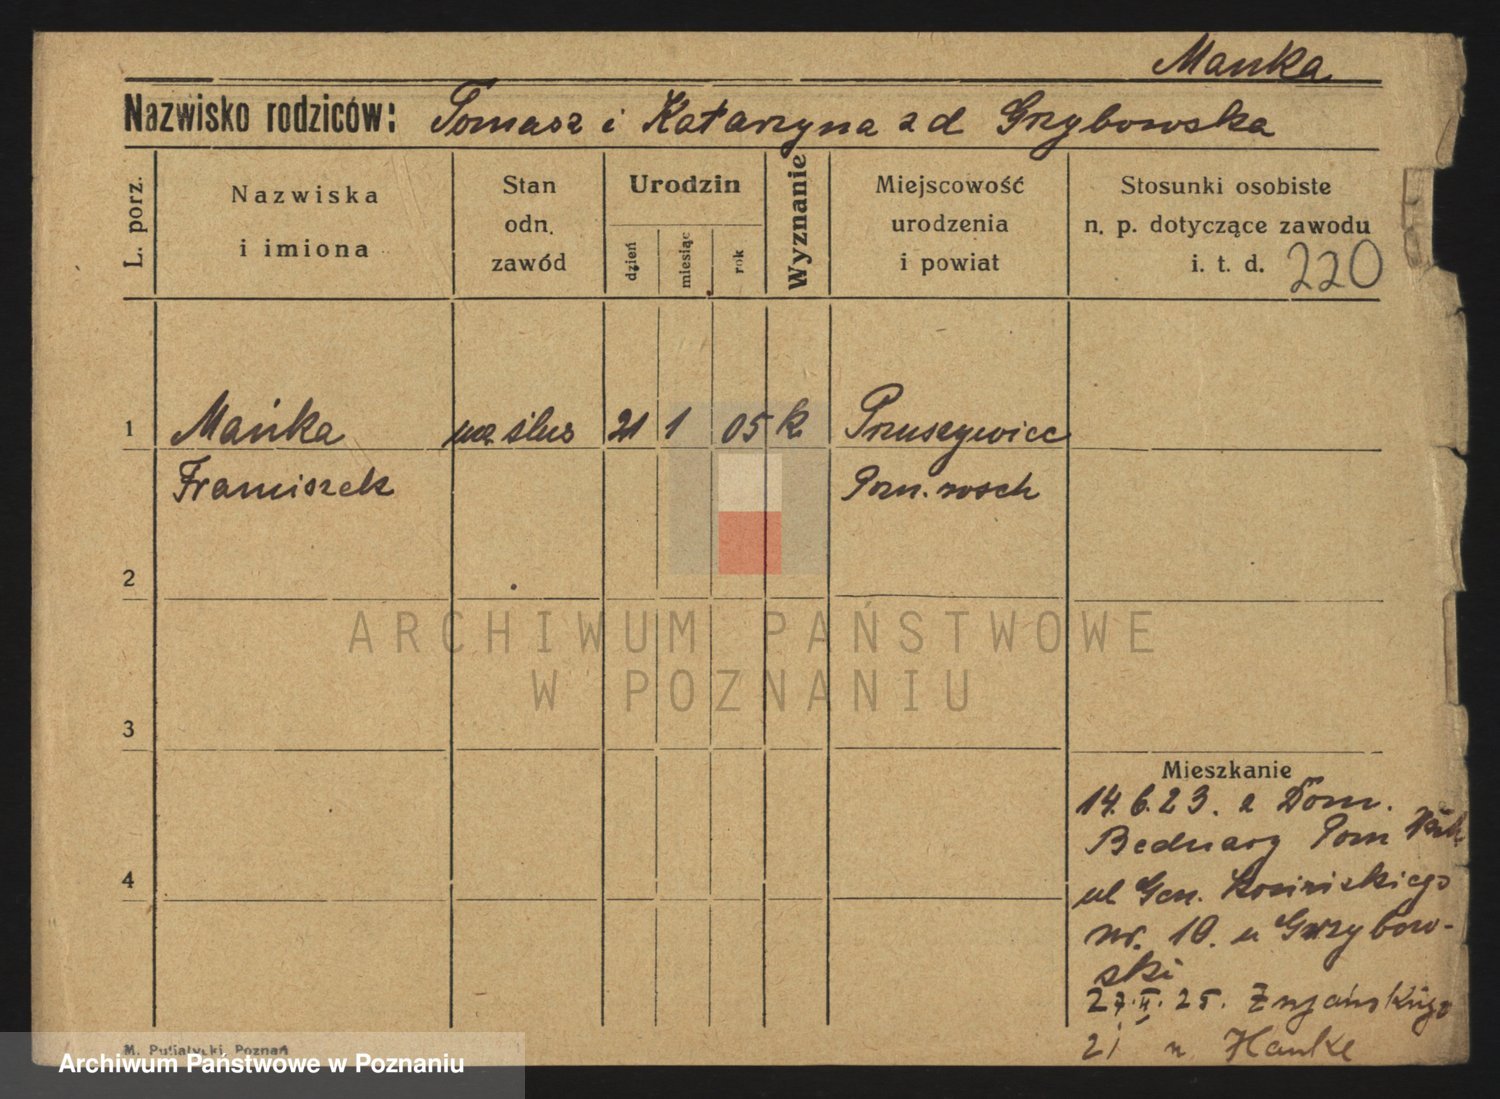 Mańka
Nazwisko rodziców: Tomasz i Katarzyna z d Grzybowska
L. porz.
Nazwiska
i imiona
Stan
odn.
zawód
Urodzin
dzień
miesiąc
rok
Wyznanie
Miejscowość
urodzenia
i powiat
Stosunki osobiste
n. p. dotyczące zawodu
i. t. d. 220
1 Mańka ucz. ślus 21 1 05 k
Franciszek Pozn. wsch
2
3
4
Mieszkanie
14.6.23. z Dom.
Bednary Pozn
ul Gen. Kosińskiego
nr. 10. u Grzybow-
ski
27.II.25.
21 u Hanke
ARCHIWUM PAŃSTWOWE
W POZNANIU
M. Putiatycki, Poznań
Archiwum Państwowe w Poznaniu